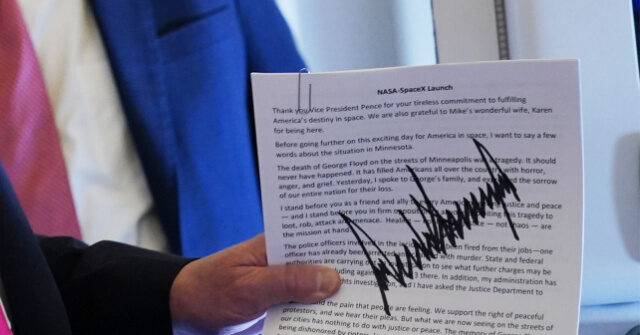 NASA-SpaceX Launch
Thank you Vice President Pence for your tireless commitment to fulfilling
America's destiny in space. We are also grateful to Mike's wonderful wife, Karen
for being here.
Before going further on this exciting day for America in space, I want to say a few
words about the situation in Minnesota.
The death of George Floyd on the streets of Minneapolis was a tragedy. It should
never have happened. It has filled Americans all over the country with horror,
anger, and grief. Yesterday, I spoke to George's family, and expressed the sorrow
of our entire nation for their loss.
I stand before you as a friend and ally to every American justice and peace
— and I stand before you in firm opposition to this tragedy to
loot, rob, attack and menace. not chaos — are
the mission at hand
The police officers involved in the been fired from their jobs—one
officer has already been arrested with murder. State and federal
authorities are carrying out to see what further charges may be
including against 3 there. In addition, my administration has
rights investigation, and I have asked the Justice Department to
the pain that people are feeling. We support the right of peaceful
protestors, and we hear their pleas. But what we are now seeing on the streets of
our cities has nothing to do with justice or peace. The memory of George
being dishonored by